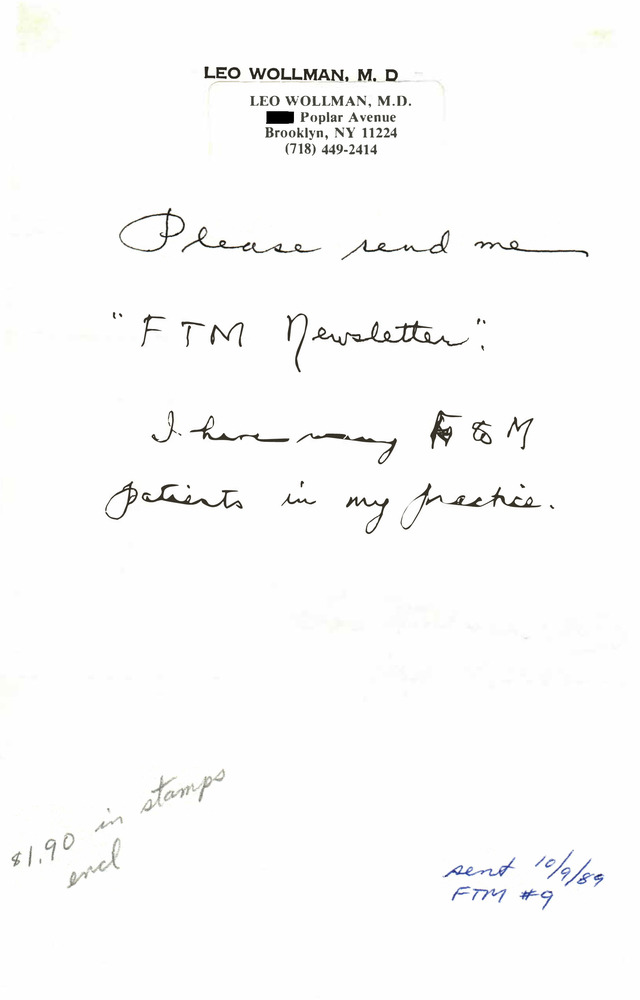 LEO WOLLMAN, M. D
LEO WOLLMAN, M.D.
Poplar Avenue
Brooklyn, NY 11224
(718) 449-2414
Please send me
"FTM Newsletter".
I have many F & M
patients in my practice.
$1.90 in stamps
encl
sent 10/9/89
FTM #9